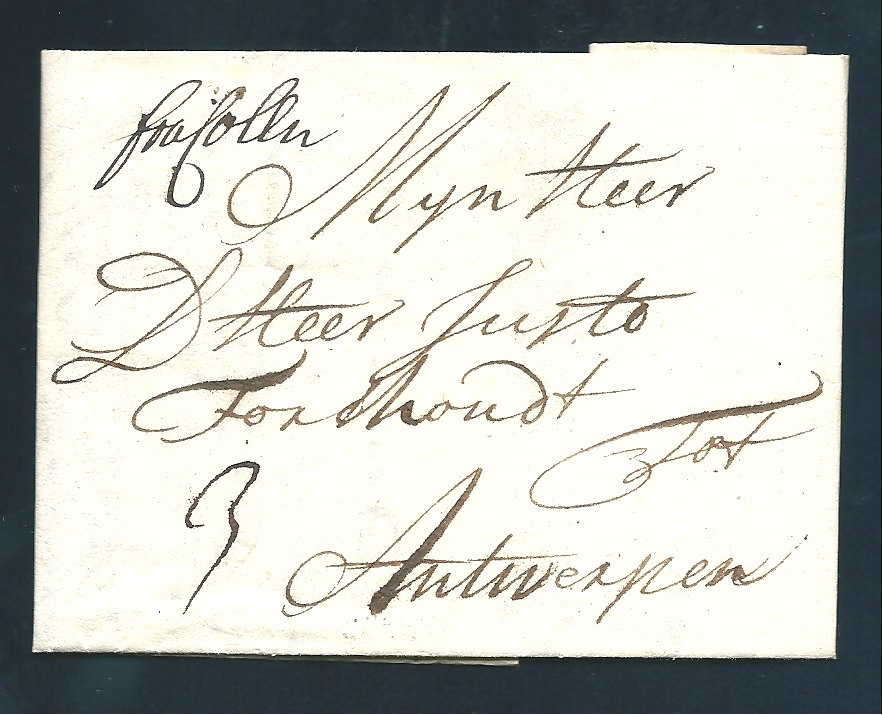 fra Colln
6
Myn Heer
D Heer Justo
Forchoudt
Tot
3
Antwerpen